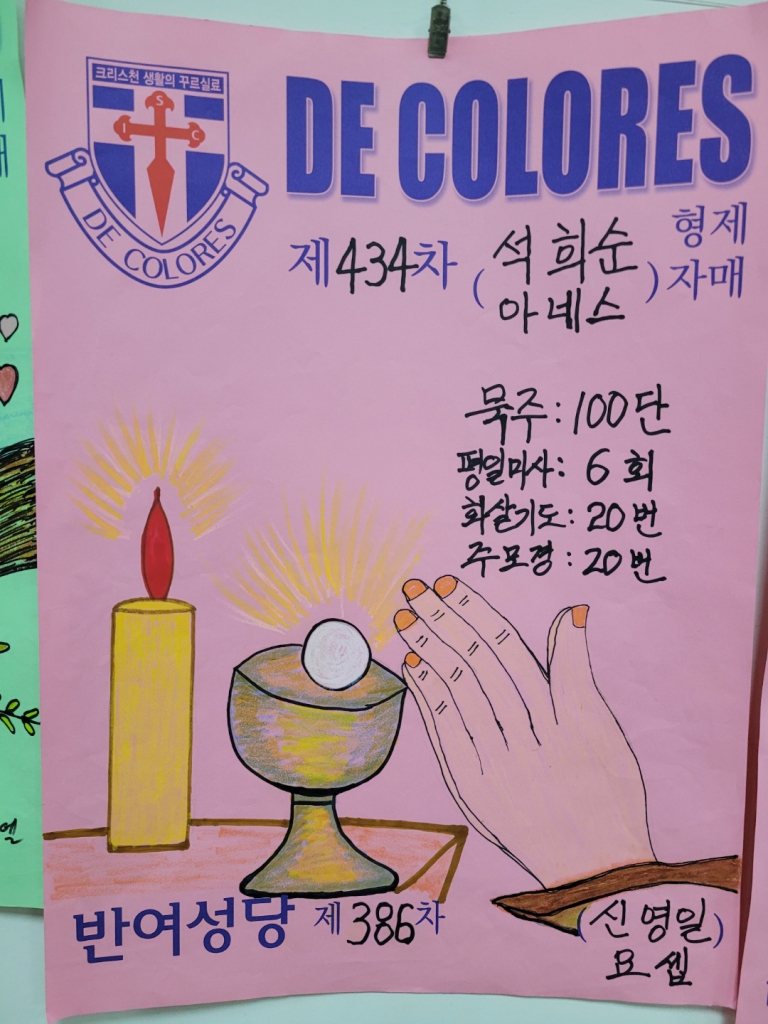 크리스천 생활의 꾸르실료
S
I C
DE COLORES
DE COLORES
제434차 (석희순 아네스) 형제 자매
묵주 : 100단
평일미사 : 6회
화살기도 : 20번
주모경 : 20번
반여성당 제386차 (신영일)
요셉
엘